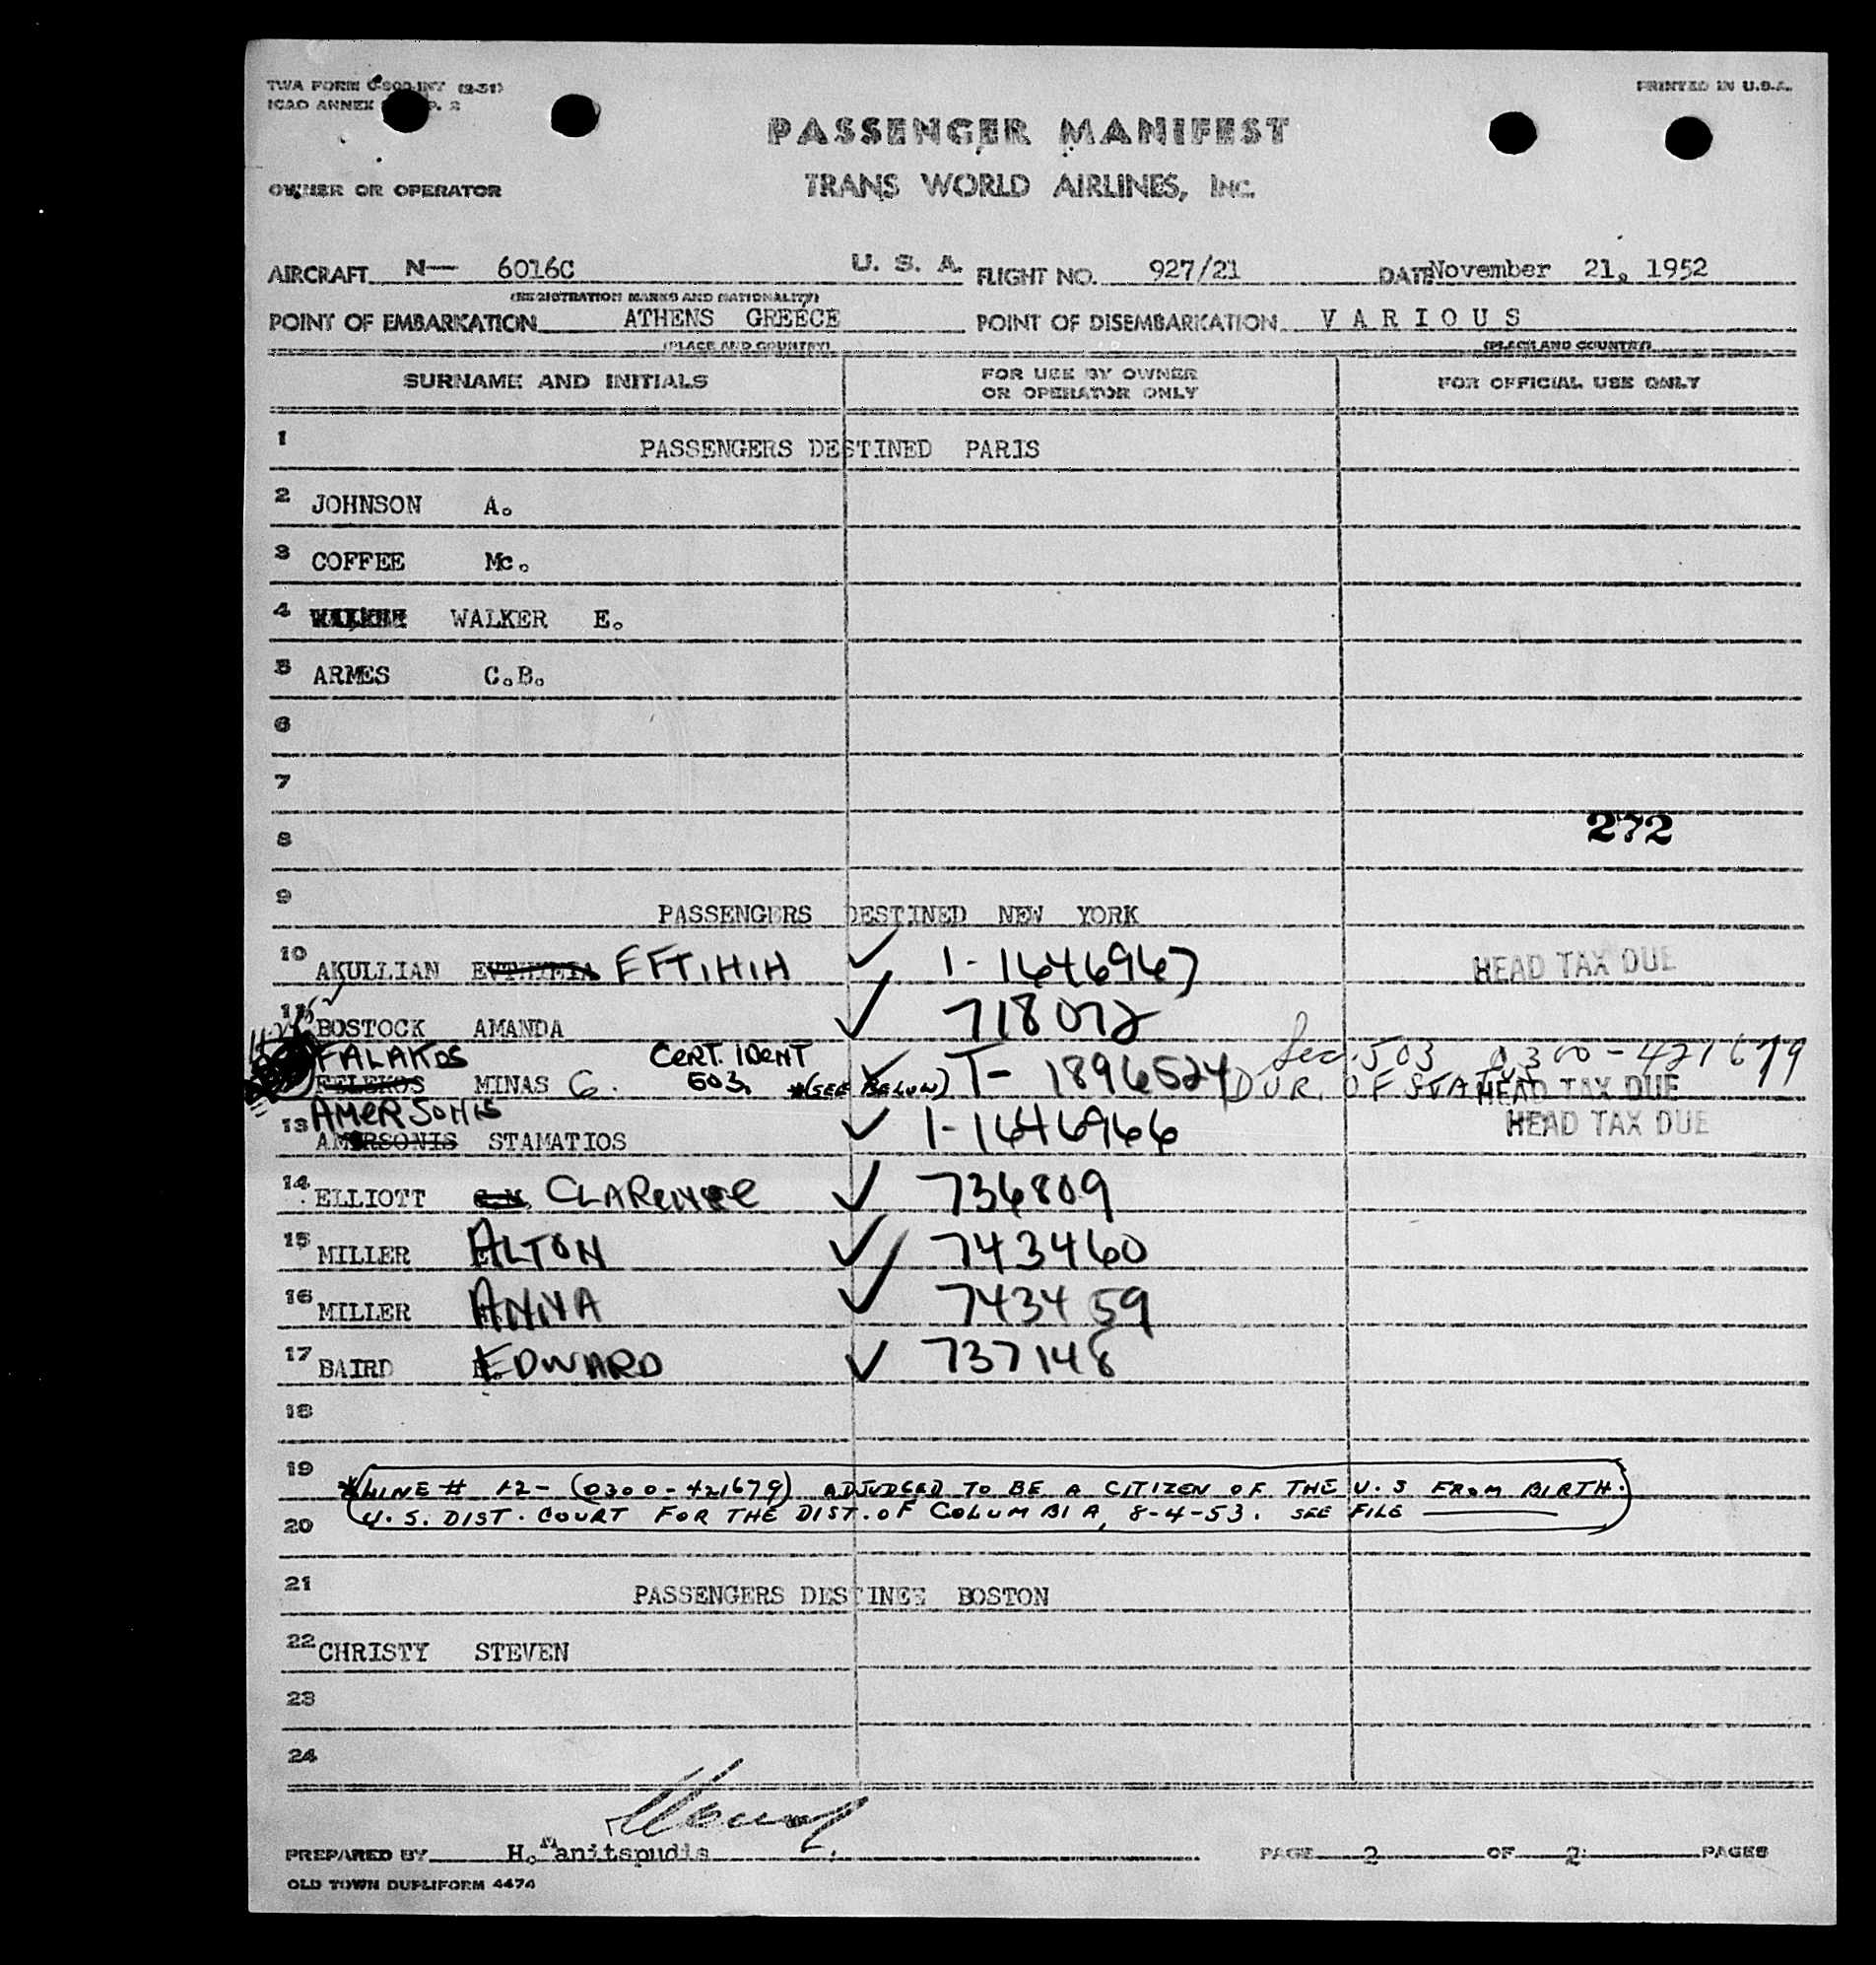 TWA FORM (2-51)
PRINTED IN U.S.A.
ICAO ANNEX P. 2
PASSENGER MANIFEST
OWNER OR OPERATOR
TRANS WORLD AIRLINES, INC.
AIRCRAFT N— 6016C U. S. A. FLIGHT NO. 927/21 DATE November 21, 1952
(REGISTRATION MARKS AND NATIONALITY)
POINT OF EMBARKATION ATHENS GREECE POINT OF DISEMBARKATION V A R I O U S
(PLACE AND COUNTRY) (PLACE AND COUNTRY)
SURNAME AND INITIALS FOR USE BY OWNER OR OPERATOR ONLY FOR OFFICIAL USE ONLY
1 PASSENGERS DESTINED PARIS
2 JOHNSON A.
3 COFFEE Mc.
4 WALKER E.
5 ARMES C.B.
6
7
8 272
9 PASSENGERS DESTINED NEW YORK
10 AKULLIAN EFTIHIH ✓ 1-1646967 HEAD TAX DUE
11 BOSTOCK AMANDA ✓ 718072
FALAKOS CERT. IDENT Sec. 503 0300-421679
FELEKOS MINAS G. 503. *(SEE BELOW) ✓ T- 1896524 DUR. OF STATUS HEAD TAX DUE
AMERSONIS
13 AMERSONIS STAMATIOS ✓ 1-1646966 HEAD TAX DUE
14 ELLIOTT CLARENCE ✓ 736809
15 MILLER ALTON ✓ 743460
16 MILLER ANNA ✓ 743459
17 BAIRD EDWARD ✓ 737148
18
19 *LINE # 12- (0300-421679) ADJUDGED TO BE A CITIZEN OF THE U.S FROM BIRTH.
20 U.S. DIST. COURT FOR THE DIST. OF COLUMBIA, 8-4-53. SEE FILE
21 PASSENGERS DESTINED BOSTON
22 CHRISTY STEVEN
23
24
PREPARED BY H. Manitspudis PAGE 2 OF 2 PAGES
OLD TOWN DUPLIFORM 4474